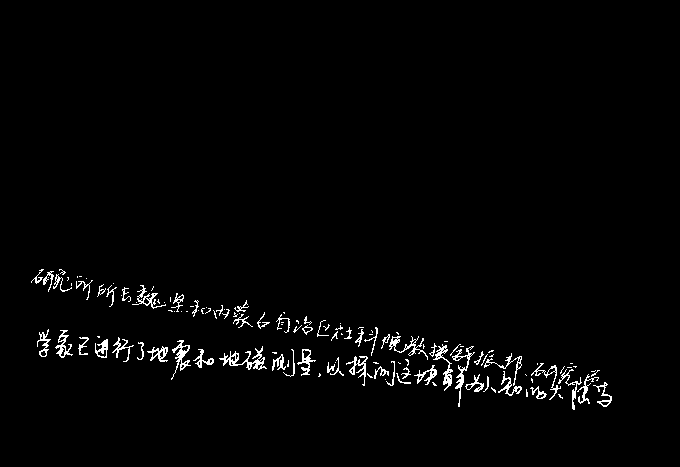 研究所所长魏坚和内蒙古自治区社科院教授舒振邦.研究蒙
学家已进行了地震和地磁测量,以探测这块鲜为人知的大陆与